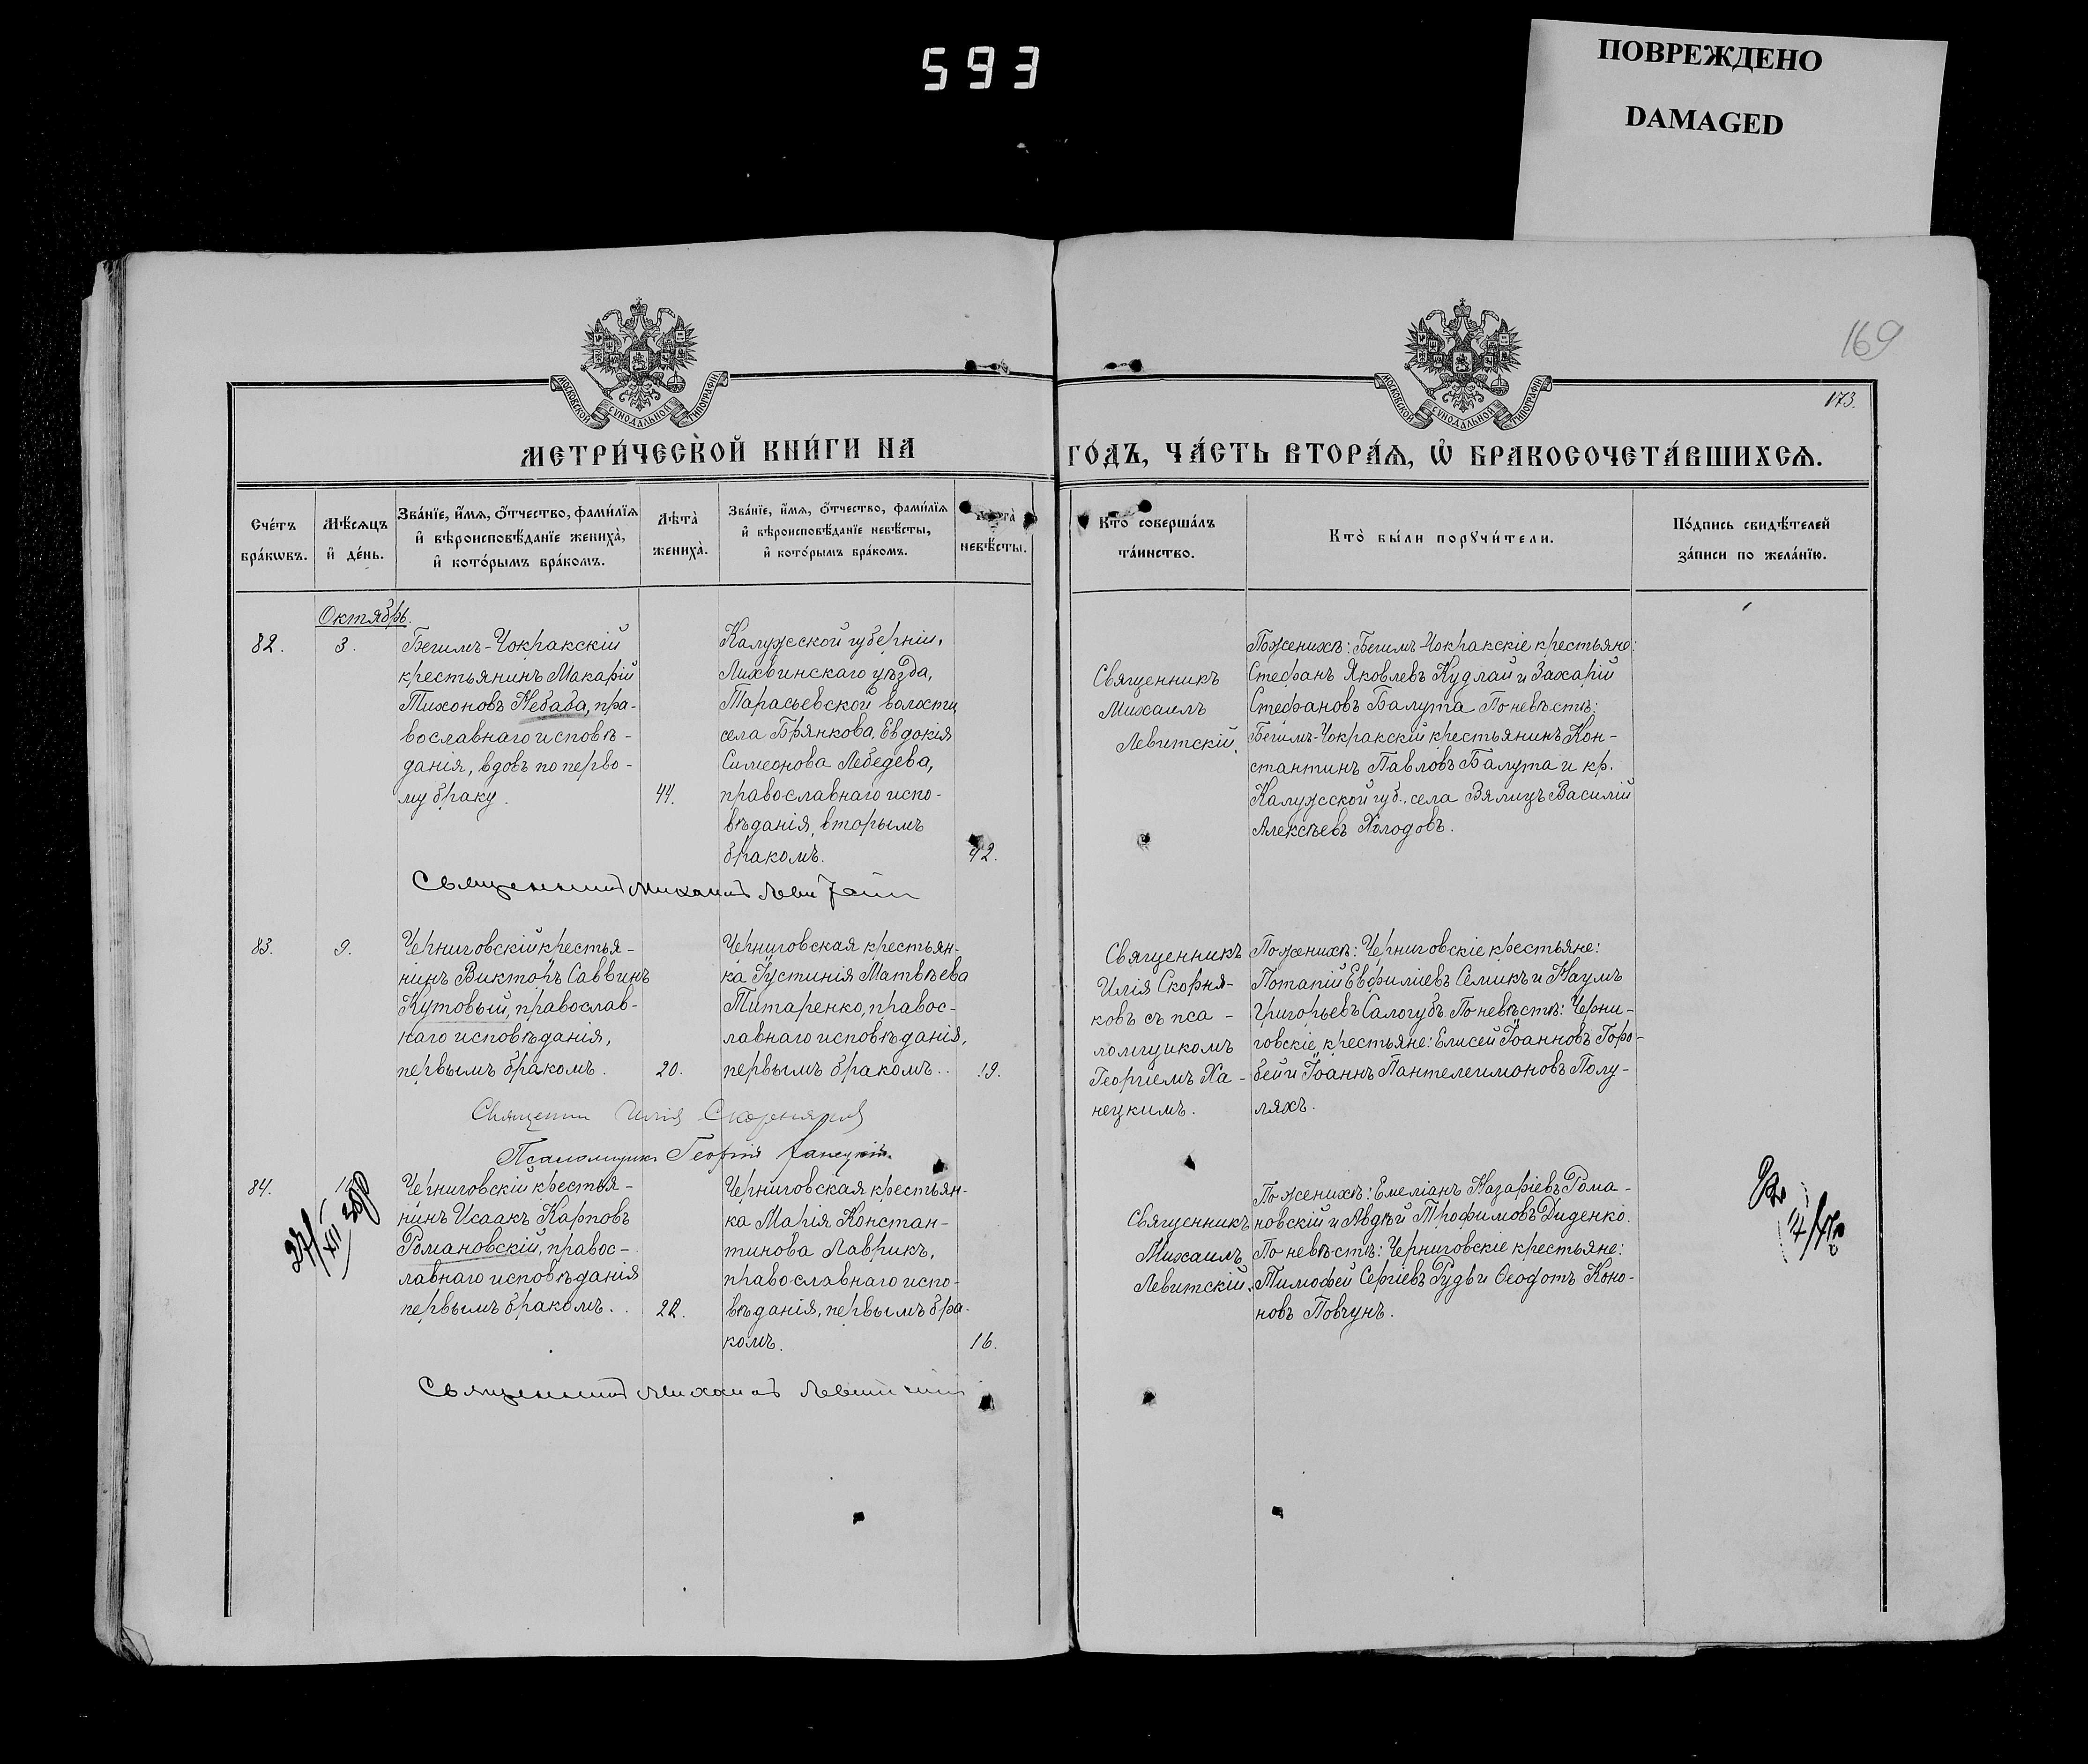 593
ПОВРЕЖДЕНО
DAMAGED
169
173.
МОСКОВСКОЙ СУНОДАЛЬНОЙ ТИПОГРАФІИ
МОСКОВСКОЙ СУНОДАЛЬНОЙ ТИПОГРАФІИ
МЕТРИ́ЧЕСКОЙ КНИ́ГИ НА
ГО́ДЪ, ЧА́СТЬ ВТОРА́Ѧ, Ѽ БРАКОСОЧЕТА́ВШИХСѦ.
Сче́тъ
бра́кωвъ.
Мѣ́сѧцъ
и҆ де́нь.
Зва́нїе, и҆́мѧ, ѻ҆́тчество, фами́лїѧ
и҆ вѣроисповѣ́данїе жениха̀,
и҆ кото́рымъ бра́комъ.
Лѣта̀
жениха̀.
Зва́нїе, и҆́мѧ, ѻ҆́тчество, фами́лїѧ
и҆ вѣроисповѣ́данїе невѣ́сты,
и҆ кото́рымъ бра́комъ.
невѣ́сты.
Кто̀ соверша́лъ
та́инство.
Кто̀ бы́ли порꙋчи́тели.
По́дпись свидѣ́телей
за́писи по жела́нїю.
Октябрь.
82.
3.
Бегимъ-Чокракскій
крестьянинъ Макарій
Тихоновъ Небаба, пра-
вославнаго исповѣ-
данія, вдовъ по перво-
му браку.
44.
Калужской губерніи,
Лихвинскаго уѣзда,
Тарасьевской волости
села Брянкова, Евдокія
Симеонова Лебедева,
православнаго испо-
вѣданія, вторымъ
бракомъ.
42.
Священникъ
Михаилъ
Левитскій.
По женихѣ: Бегимъ-Чокракскіе крестьяне:
Стефанъ Яковлевъ Кудлай и Захарій
Стефановъ Балута По невѣстѣ:
Бегимъ-Чокракскій крестьянинъ Кон-
стантинъ Павловъ Балута и кр.
Калужской губ., села Вялицъ Василій
Алексѣевъ Холодовъ.
Священникъ Михаилъ Левитскій
83.
9.
Черниговскій крестья-
нинъ Викторъ Саввинъ
Кутовый, православ-
наго исповѣданія,
первымъ бракомъ.
20.
Черниговская крестьян-
ка Іустинія Матвѣева
Титаренко, правос-
лавнаго исповѣданія,
первымъ бракомъ..
19.
Священникъ
Илія Скорня-
ковъ съ пса-
ломщикомъ
Георгіемъ Ха-
нецкимъ.
По женихѣ: Черниговскіе крестьяне:
Потапій Евфиміевъ Семикъ и Наумъ
Григорьевъ Салогубъ. По невѣстѣ: Черни-
говскіе крестьяне: Елисей Іоанновъ Горо-
бей и Іоаннъ Пантелеимоновъ Полу-
ляхъ.
Священни Илія Скорняковъ
Псаломщикъ Георгій Ханецкій.
84.
Черниговскій крестья-
нинъ Исаакъ Карповъ
Романовскій, правос-
лавнаго исповѣданія
первымъ бракомъ..
22.
Черниговская крестьян-
ка Марія Констан-
тинова Лаврикъ,
православнаго испо-
вѣданія, первымъ бра-
комъ.
16.
Священникъ
Михаилъ
Левитскій.
По женихѣ: Емеліанъ Назаріевъ Рома-
новскій и Авдѣй Трофимовъ Диденко.
По невѣстѣ: Черниговскіе крестьяне:
Тимофей Сергіевъ Рудь и Ѳеодотъ Коно-
новъ Повчунъ.
Священникъ Михаилъ Левитскій